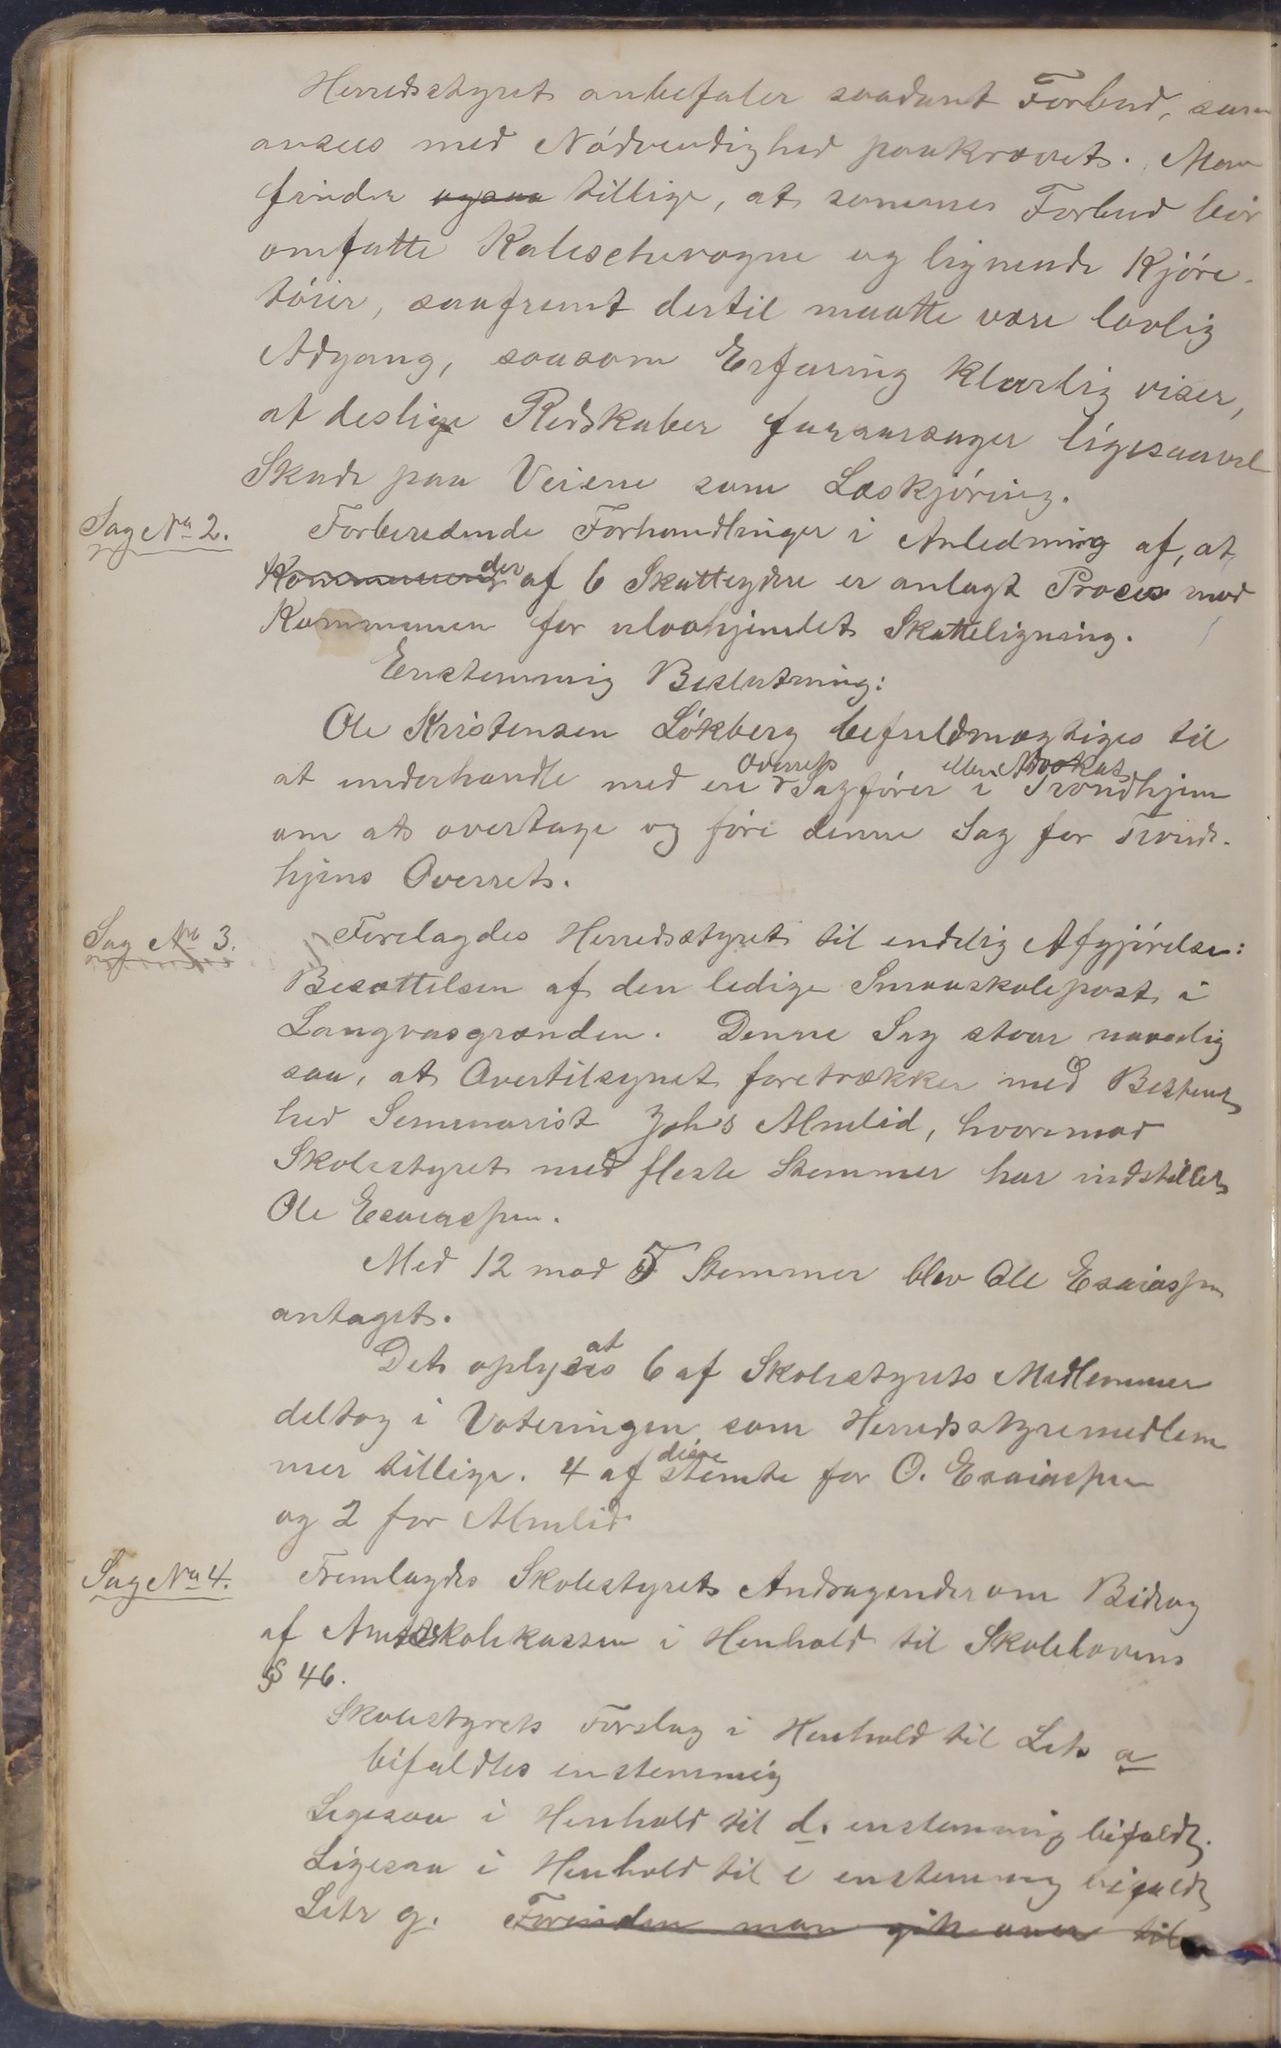 Herredsstyret anbefaler saadant Forbud, som
ansees med Nödvendighed paakrævet. Man
finder ogsaa tillige, at samme Forbud bör
omfatte Kaleschevogne og lignende Kjöre-
töier, saafremt dertil maatte være lovlig
Adgang, saasom Erfaring klarlig viser,
at deslige Redskaber foraarsager ligesaavel
Skade paa Veiene som Læskjöring.
Sag No 2.
Forberedende Forhandlinger i Anledning af, at
Kommunen der af 6 Skatteydere er anlagt Proces mod
Kommunen for ulovhjemlet Skatteligning.
Enstemmig Beslutning:
Ole Kristensen Lökberg befuldmægtiges til
at underhandle med en Overrets Sagförer eller Advokat i Trondhjem
om at overtage og före denne Sag for Trond-
hjems Overret.
Sag No 3.
Forelagdes Herredsstyret til endelig Afgjörelse:
Besættelsen af den ledige Smaaskolepost i
Langvasgrænden. Denne Sag staar navnlig
saa, at Overtilsynet foretrækker med Bestemt
hed Seminarist Johs Almlid, hvorimod
Skolestyret med fleste Stemmer har indstillet
Ole Esaiassen.
Med 12 mod 5 Stemmer blev Ole Esaiassen
antaget.
Det oplyses at 6 af Skolestyrets Medlemmer
deltog i Voteringen som Herredsstyremedlem
mer tillige. 4 af disse stemte for O. Esaiassen
og 2 for Almlid
Sag No 4.
Fremlagdes Skolestyrets Andragender om Bidrag
af Amtsskolekassen i Henhold til Skolelovens
§ 46.
Skolestyrets Forslag i Henhold til Litr a
bifaldtes enstemmig
Ligesaa i Henhold til d. enstemmig bifaldt.
Ligesaa i Henhold til e enstemmig bifaldt
Litr g. Forinden man gik over til